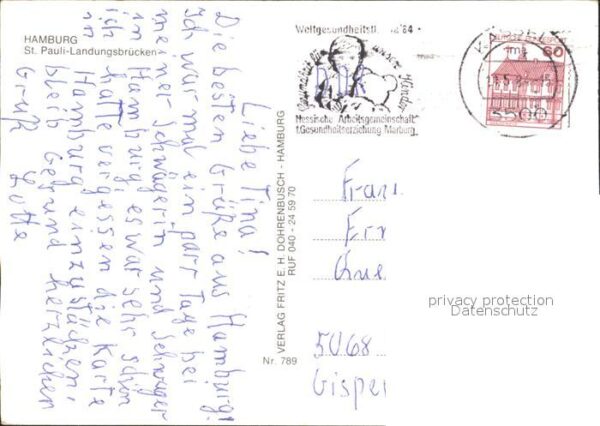 HAMBURG
St. Pauli-Landungsbrücken
Liebe Tina!
Die besten Grüße aus Hamburg.
Ich war mal ein paar Tage bei
meiner Schwägerin und Schwager
in Hamburg, es war sehr schön
ich hatte vergessen die Karte
in Hamburg einzustecken,
bleib Gesund herzlichen
Gruß Lotte
VERLAG FRITZ E. H. DOHRENBUSCH - HAMBURG
RUF 040 - 24 59 70
Nr. 789
Weltgesundheitst '84
unsere Kinder
Hessische Arbeitsgemeinschaft
f.Gesundheitserziehung Marburg
60
5500
Frau
5068
privacy protection
Datenschutz